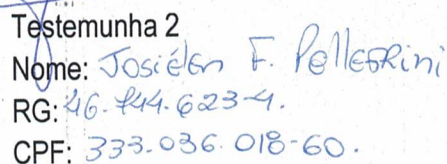 Testemunha 2
Nome: Josiélen F. Pellegrini
RG: 46.744.623-4.
CPF: 333.036.018-60.